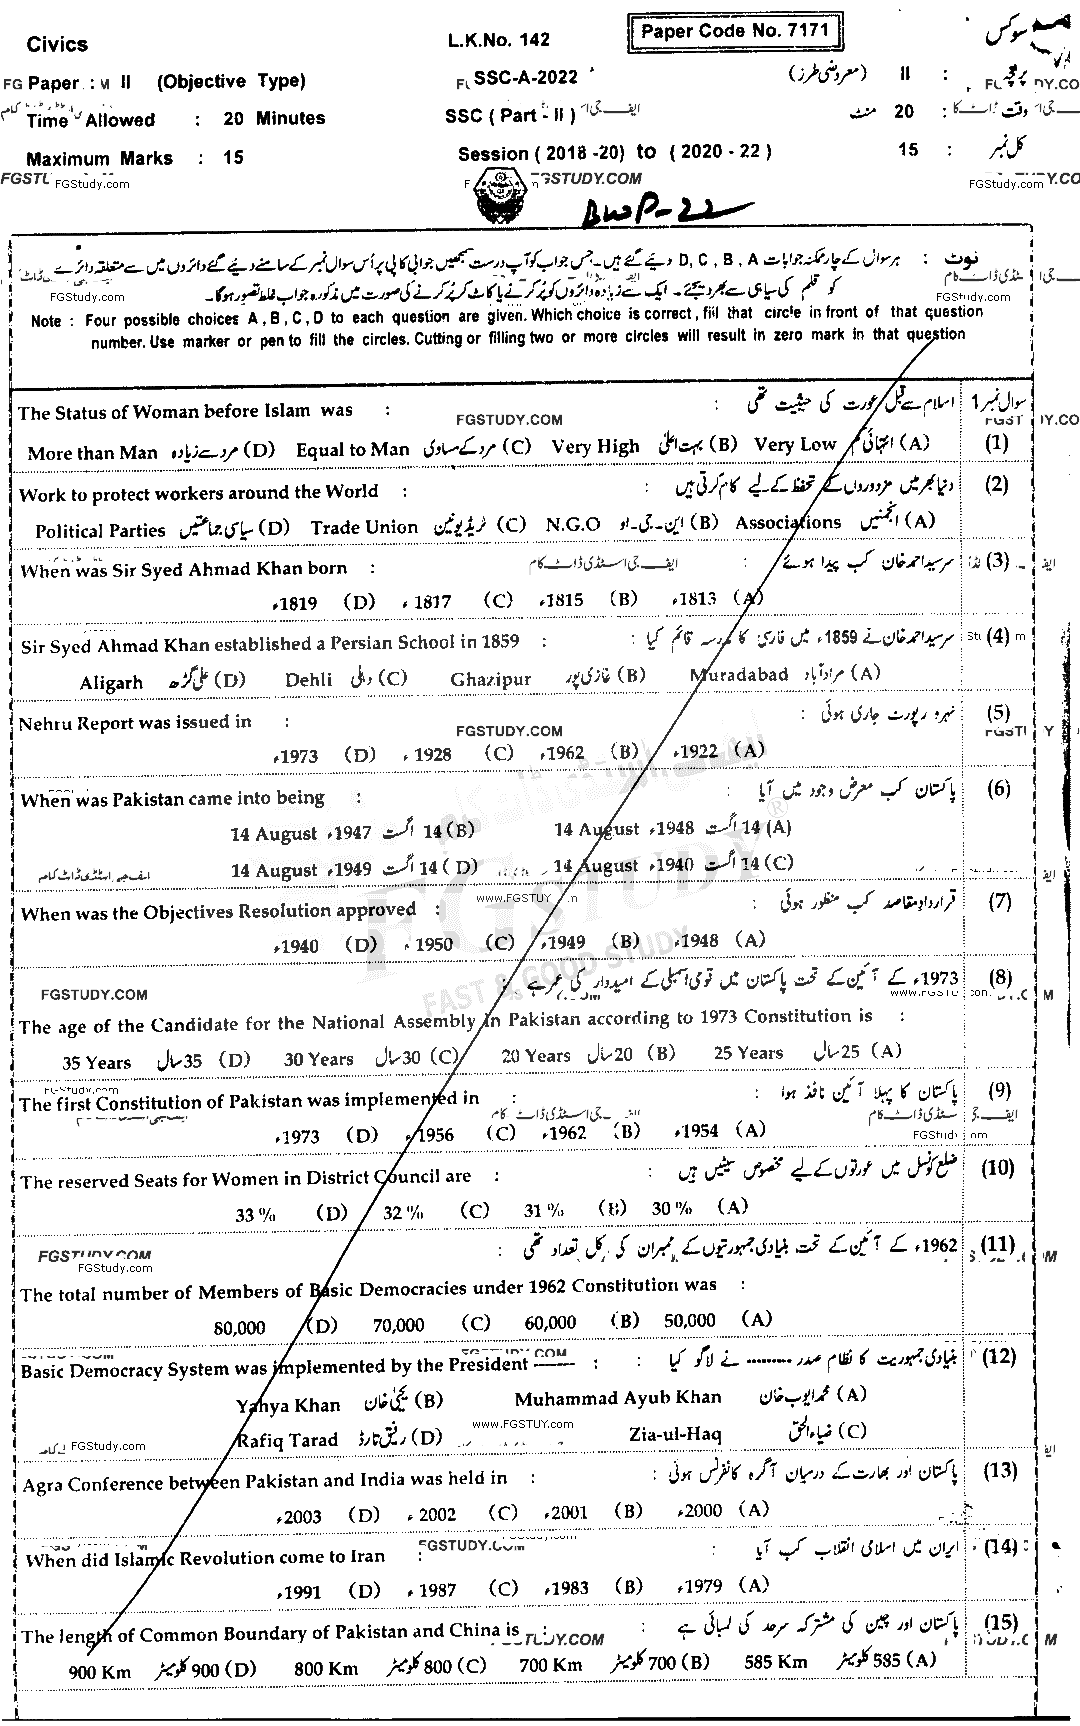 Civics
L.K.No. 142
Paper Code No. 7171
سوکس
Paper : II (Objective Type)
SSC-A-2022
پرچہ : II (معروضی طرز)
Time Allowed : 20 Minutes
SSC ( Part - II )
وقت : 20 منٹ
Maximum Marks : 15
Session ( 2018 -20) to ( 2020 - 22 )
کل نمبر : 15
FGStudy.com
FGSTUDY.COM
FGStudy.com
BWP-22
نوٹ : ہر سوال کے چار ممکنہ جوابات D, C, B, A دیئے گئے ہیں۔ جس جواب کو آپ درست سمجھیں جوابی کاپی پر اُس سوال نمبر کے سامنے دیئے گئے دائروں میں سے متعلقہ دائرے
کو قلم کی سیاہی سے بھر دیجئے۔ ایک سے زیادہ دائروں کو پُر کرنے یا کاٹ کر پُر کرنے کی صورت میں مذکورہ جواب غلط تصور ہوگا۔
FGStudy.com
FGStudy.com
Note : Four possible choices A, B, C, D to each question are given. Which choice is correct, fill that circle in front of that question
number. Use marker or pen to fill the circles. Cutting or filling two or more circles will result in zero mark in that question
سوال نمبر 1 اسلام سے قبل عورت کی حیثیت تھی :
The Status of Woman before Islam was :
FGSTUDY.COM
(1)
More than Man مرد سے زیادہ (D) Equal to Man مرد کے مساوی (C) Very High بہت اعلیٰ (B) Very Low انتہائی کم (A)
(2) دنیا بھر میں مزدوروں کے تحفظ کے لیے کام کرتی ہیں :
Work to protect workers around the World :
Political Parties سیاسی جماعتیں (D) Trade Union ٹریڈ یونین (C) N.G.O این ۔ جی ۔ او (B) Associations انجمنیں (A)
(3) سرسید احمد خان کب پیدا ہوئے :
ایف جی اسٹڈی ڈاٹ کام
When was Sir Syed Ahmad Khan born :
1819ء (D) 1817ء (C) 1815ء (B) 1813ء (A)
(4) سرسید احمد خان نے 1859ء میں فارسی کا مدرسہ قائم کیا :
Sir Syed Ahmad Khan established a Persian School in 1859 :
Aligarh علی گڑھ (D) Dehli دہلی (C) Ghazipur غازی پور (B) Muradabad مراد آباد (A)
(5) نہرو رپورٹ جاری ہوئی :
Nehru Report was issued in :
FGSTUDY.COM
1973ء (D) 1928ء (C) 1962ء (B) 1922ء (A)
(6) پاکستان کب معرض وجود میں آیا :
When was Pakistan came into being :
14 August 1947ء 14 اگست (B) 14 August 1948ء 14 اگست (A)
14 August 1949ء 14 اگست (D) 14 August 1940ء 14 اگست (C)
ایف جی اسٹڈی ڈاٹ کام
FGSTUDY
FAST & GOOD STUDY
(7) قرارداد مقاصد کب منظور ہوئی :
When was the Objectives Resolution approved :
1940ء (D) 1950ء (C) 1949ء (B) 1948ء (A)
(8) 1973ء کے آئین کے تحت پاکستان میں قومی اسمبلی کے امیدوار کی عمر ہے :
FGSTUDY.COM
The age of the Candidate for the National Assembly in Pakistan according to 1973 Constitution is :
35 Years 35 سال (D) 30 Years 30 سال (C) 20 Years 20 سال (B) 25 Years 25 سال (A)
(9) پاکستان کا پہلا آئین نافذ ہوا :
The first Constitution of Pakistan was implemented in :
1973ء (D) 1956ء (C) 1962ء (B) 1954ء (A)
(10) ضلع کونسل میں عورتوں کے لیے مخصوص سیٹیں ہیں :
The reserved Seats for Women in District Council are :
33 % (D) 32 % (C) 31 % (B) 30 % (A)
(11) 1962ء کے آئین کے تحت بنیادی جمہوریتوں کے ممبران کی کل تعداد تھی :
FGSTUDY.COM
FGStudy.com
The total number of Members of Basic Democracies under 1962 Constitution was :
80,000 (D) 70,000 (C) 60,000 (B) 50,000 (A)
(12) بنیادی جمہوریت کا نظام صدر ......... نے لاگو کیا :
Basic Democracy System was implemented by the President —— :
Yahya Khan یحییٰ خان (B) Muhammad Ayub Khan محمد ایوب خان (A)
www.FGSTUY.com
Rafiq Tarad رفیق تارڈ (D) Zia-ul-Haq ضیاء الحق (C)
FGStudy.com
(13) پاکستان اور بھارت کے درمیان آگرہ کانفرنس ہوئی :
Agra Conference between Pakistan and India was held in :
2003ء (D) 2002ء (C) 2001ء (B) 2000ء (A)
(14) ایران میں اسلامی انقلاب کب آیا :
FGSTUDY.COM
When did Islamic Revolution come to Iran :
1991ء (D) 1987ء (C) 1983ء (B) 1979ء (A)
(15) پاکستان اور چین کی مشترکہ سرحد کی لمبائی ہے :
The length of Common Boundary of Pakistan and China is :
900 Km 900 کلومیٹر (D) 800 Km 800 کلومیٹر (C) 700 Km 700 کلومیٹر (B) 585 Km 585 کلومیٹر (A)